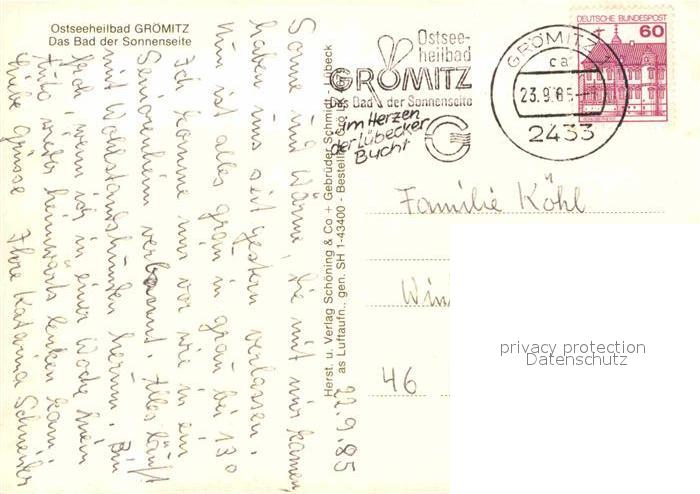 Ostseeheilbad GRÖMITZ
Das Bad der Sonnenseite
22.9.85
Sonne und Wärme, die mit mir kamen,
haben uns seit gestern verlassen.
Nun ist alles grau in grau bei 13°
Ich komme mir vor wie in ein
Seniorenheim verbannt. Alles läuft
mit Wohlstandshunden herum. Bin
froh wenn ich in einer Woche mein
Auto wieder heimwärts lenken kann.
Liebe Grüsse Ihre Katarina Schneider
Herst. u. Verlag Schöning & Co + Gebrüder Schmidt - Lübeck
as Luftaufn., gen. SH 1-43400 - Bestell
Ostsee-
heilbad
GRÖMITZ
Das Bad der Sonnenseite
im Herzen
der Lübecker
Bucht
GRÖMITZ 1
ca
23.9.85
2433
DEUTSCHE BUNDESPOST
60
Familie Köhl
Win
46
privacy protection
Datenschutz